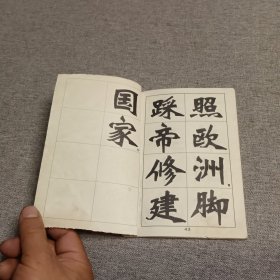 照欧洲脚
踩帝修建
国家